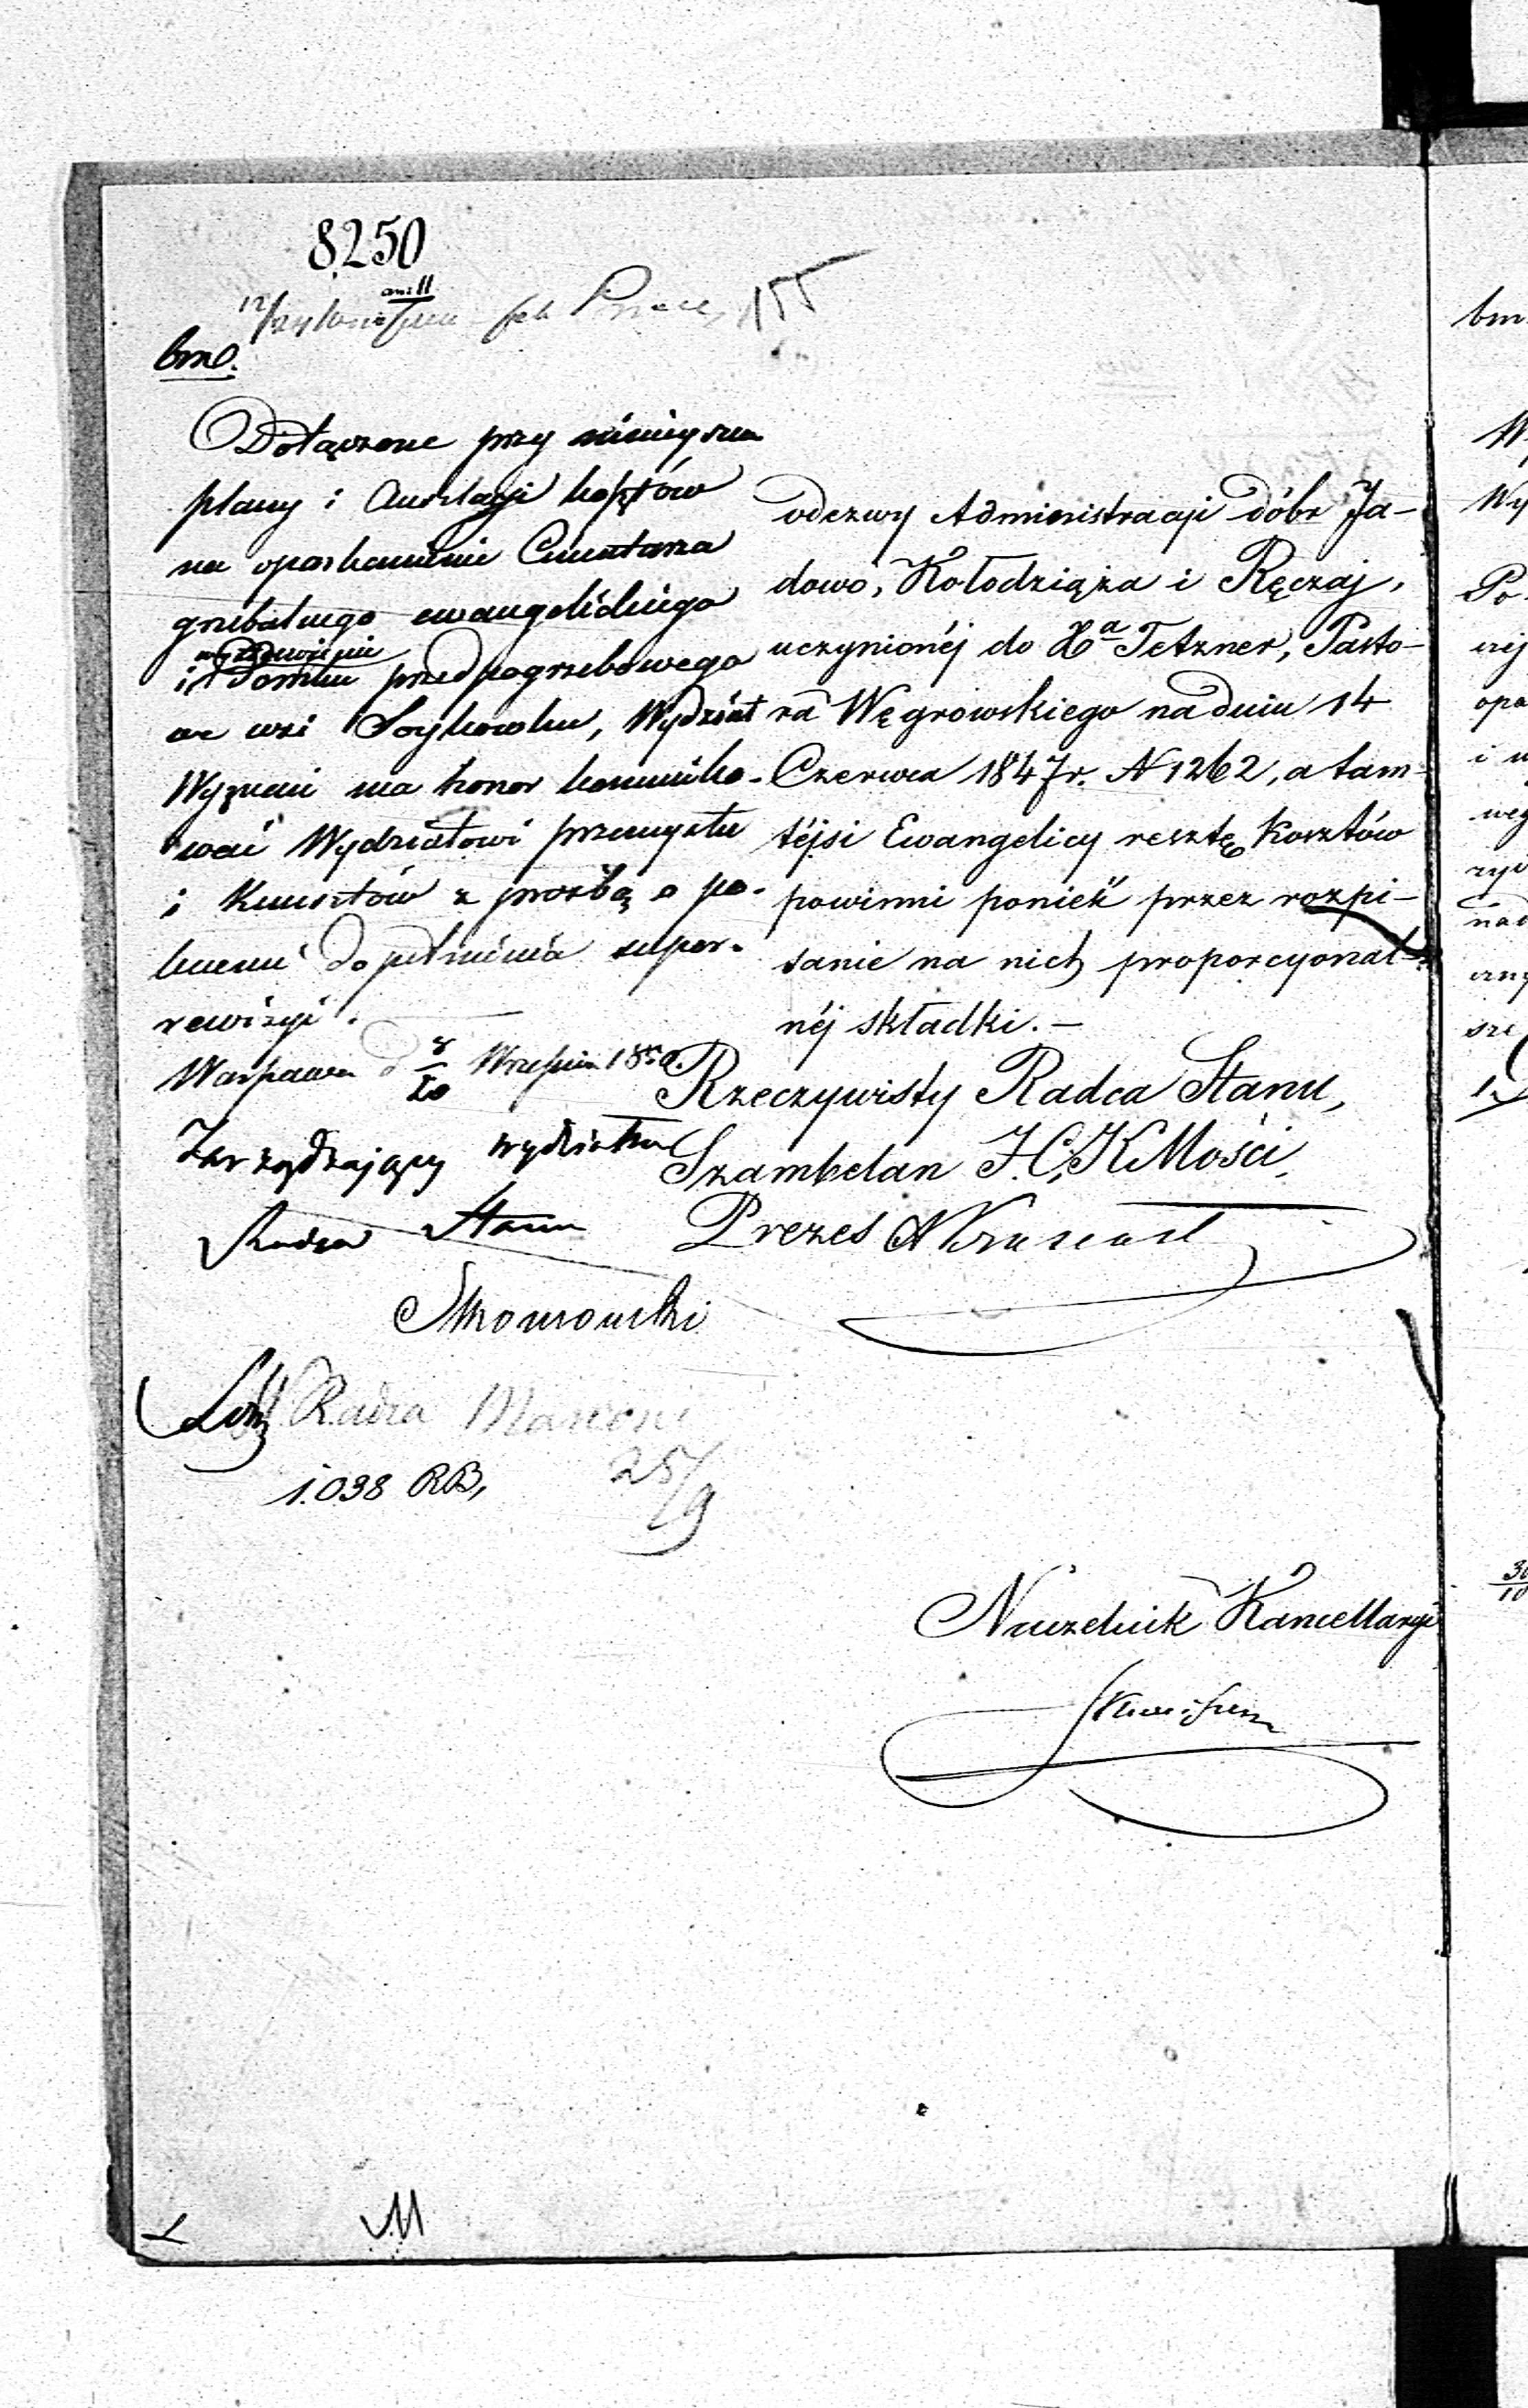 8250
155
bm.
Dołączone przy niniejszem
plany i Anszlagi kosztów
na oparkanienie Cmentarza
grzebalnego ewangelickiego
i wystawienie Domku przedpogrzebowego
we wsi Soykowku, Wydział
Wyznań ma honor komuniko-
wać Wydziałowi przemysłu
i Kunsztów z prośbą o po-
lecenie dopełnienia super-
rewizyi.
Warszawa d 8/20 Września 1850.
Zarządzający wydziałem
Radca Stanu
Radca Marconi
25/9
1.038 RB,
odezwy Administracyi dóbr Ja-
dowo, Kołodziąża i Ręczaj,
uczynionéj do Xa Tetzner, Pasto-
ra Węgrowskiego na dniu 14
Czerwca 1847 r. N 1262, a tam-
téjsi Ewangelicy resztę kosztów
powinni ponieść przez rozpi-
sanie na nich proporcyonal-
néj składki. —
Rzeczywisty Radca Stanu,
Szambelan J. C. K Mości,
Prezes
Naczelnik Kancellaryi
M